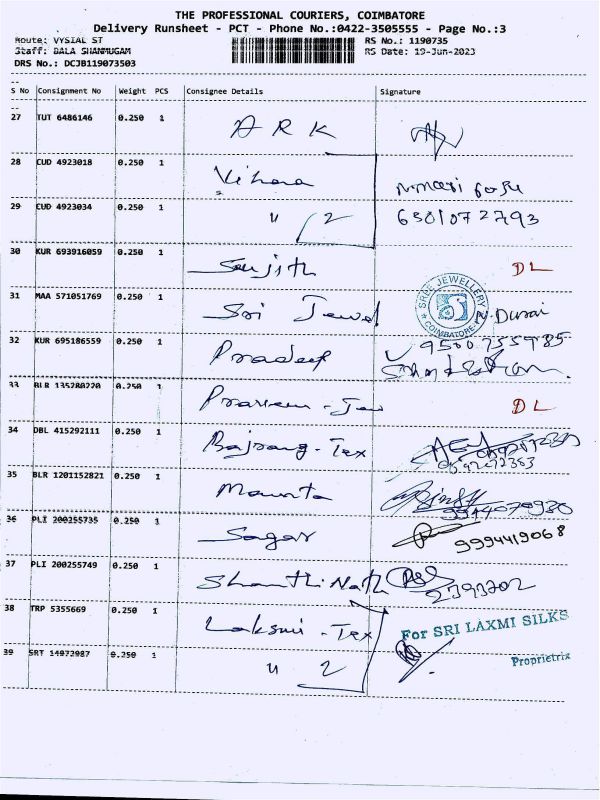 THE PROFESSIONAL COURIERS, COIMBATORE
Delivery Runsheet - PCT - Phone No.:0422-3505555 - Page No.:3
Route: VYSIAL ST
RS No.: 1190735
Staff: BALA SHANMUGAM
RS Date: 19-Jun-2023
DRS No.: DCJB119073503
S No Consignment No Weight PCS Consignee Details Signature
27 TUT 6486146 0.250 1 ARK
28 CUD 4923018 0.250 1 Vihana
29 CUD 4923034 0.250 1 " 2 6301072793
30 KUR 693916059 0.250 1 Sanjith DL
SREE JEWELLERY
COIMBATORE
31 MAA 571051769 0.250 1 Sri Jewel N. Durai
32 KUR 695186559 0.250 1 Pradeep
33 BLR 135280220 0.250 1 Praveen - Jew DL
34 DBL 415292111 0.250 1 Bajrang - Tex
35 BLR 1201152821 0.250 1 Mamta
36 PLI 200255735 0.250 1 Sagar 9994419068
37 PLI 200255749 0.250 1 Shanthi Nath
38 TRP 5355669 0.250 1 Laksmi - Tex For SRI LAXMI SILKS
39 SRT 14972987 0.250 1 " 2 Proprietrix